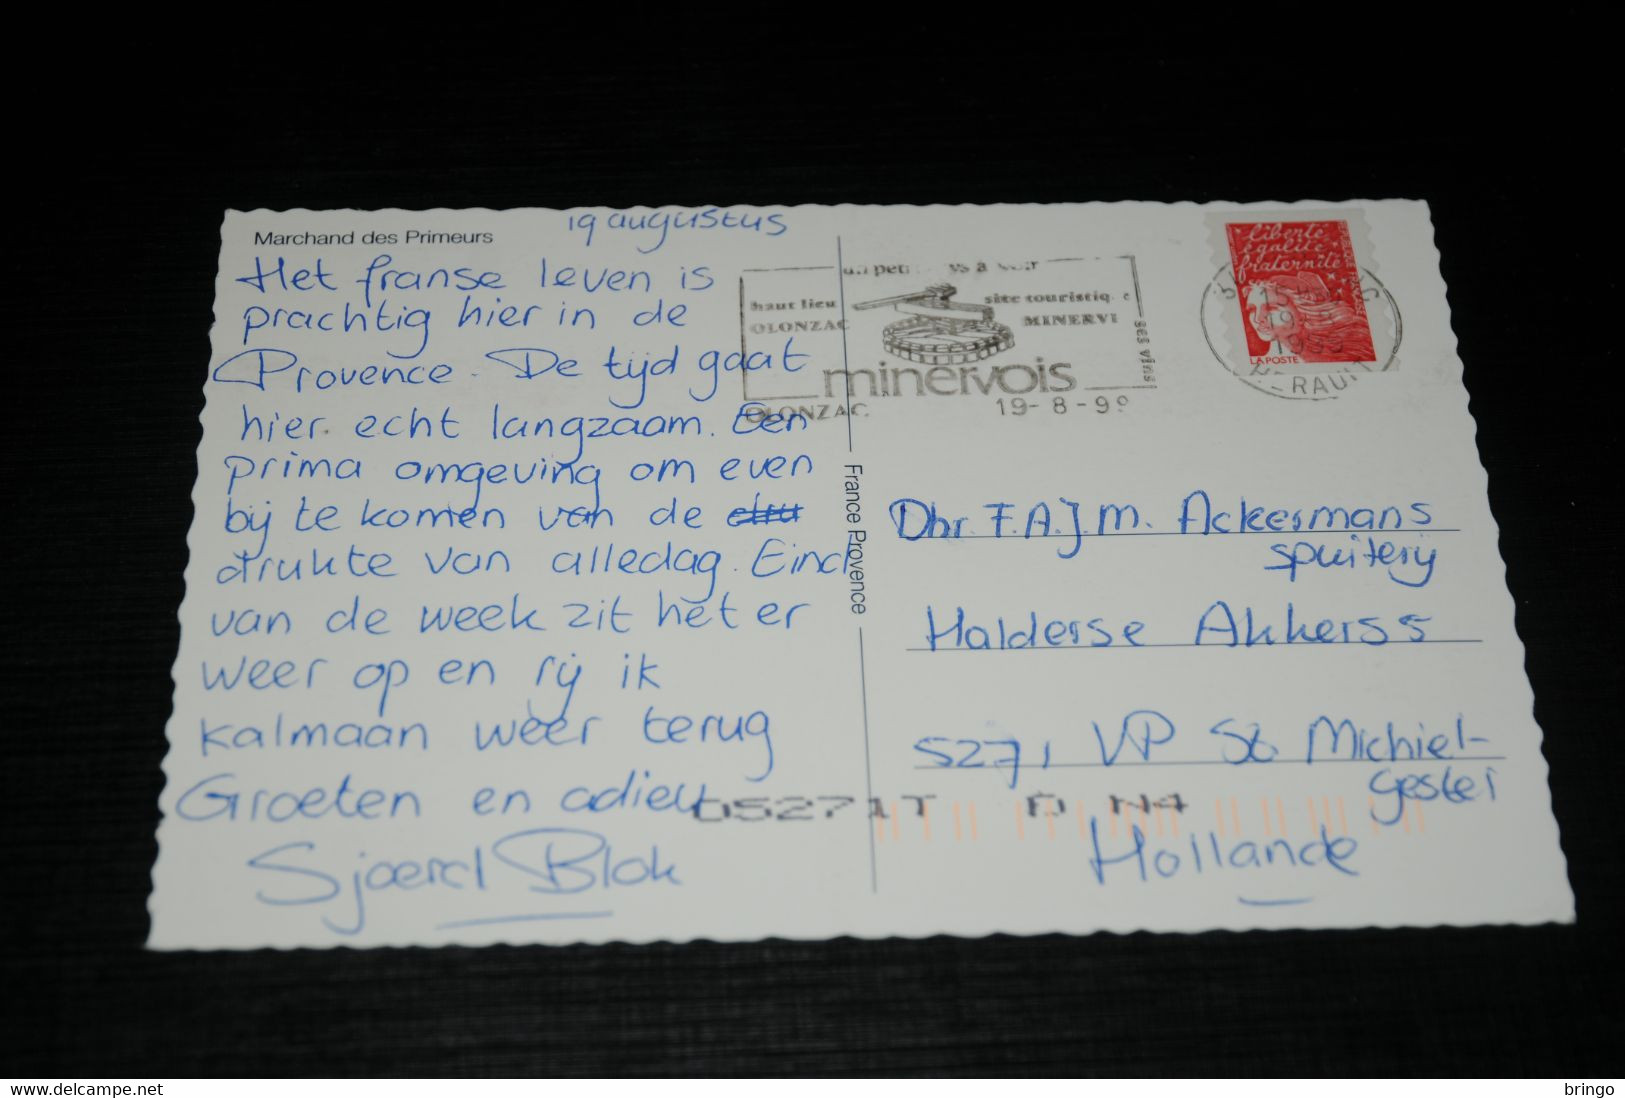 Marchand des Primeurs
19 augustus
Het franse leven is
prachtig hier in de
Provence. De tijd gaat
hier echt langzaam. Een
prima omgeving om even
bij te komen van de
drukte van alledag. Eind
van de week zit het er
weer op en rij ik
kalmaan weer terug
Groeten en adieu
Sjoerd Blok
France Provence
haut lieu
OLONZAC
site touristiq e
MINERV
ses vins
minervois
OLONZAC
19-8-99
liberté
égalité
fraternité
LA POSTE
Dhr. F.A.J.M. Ackermans
spuiterij
Halderse Akkers 5
5271 VP St Michiel-
gestel
Hollande
05271T N4
delcampe.net
bringo